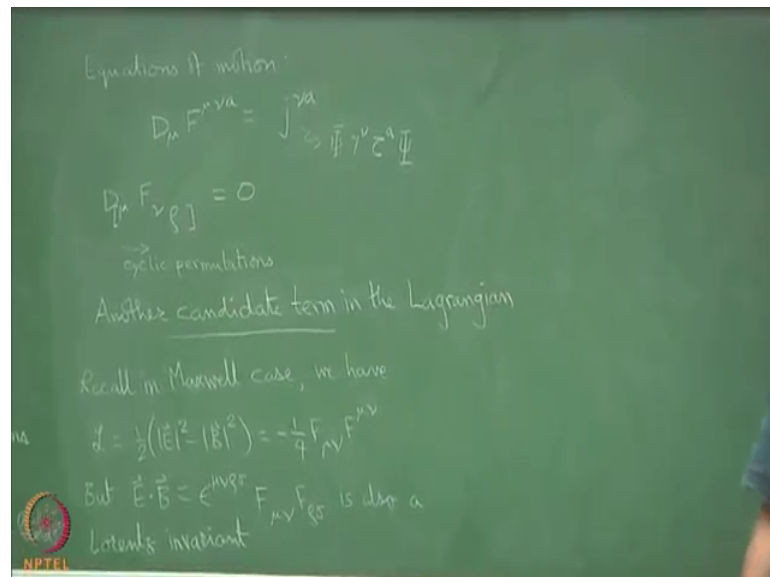 Equations of motion:
D_μ F^{μνa} = j^{νa}
↳ Ψ̄ γ^ν τ^a Ψ
D_{[μ} F_{νρ]} = 0
→
cyclic permutations
Another candidate term in the Lagrangian
Recall in Maxwell case, we have
ns
ℒ = ½(|E⃗|² − |B⃗|²) = −¼ F_{μν} F^{μν}
But E⃗·B⃗ = ε^{μνρσ} F_{μν} F_{ρσ} is also a
Lorentz invariant
NPTEL